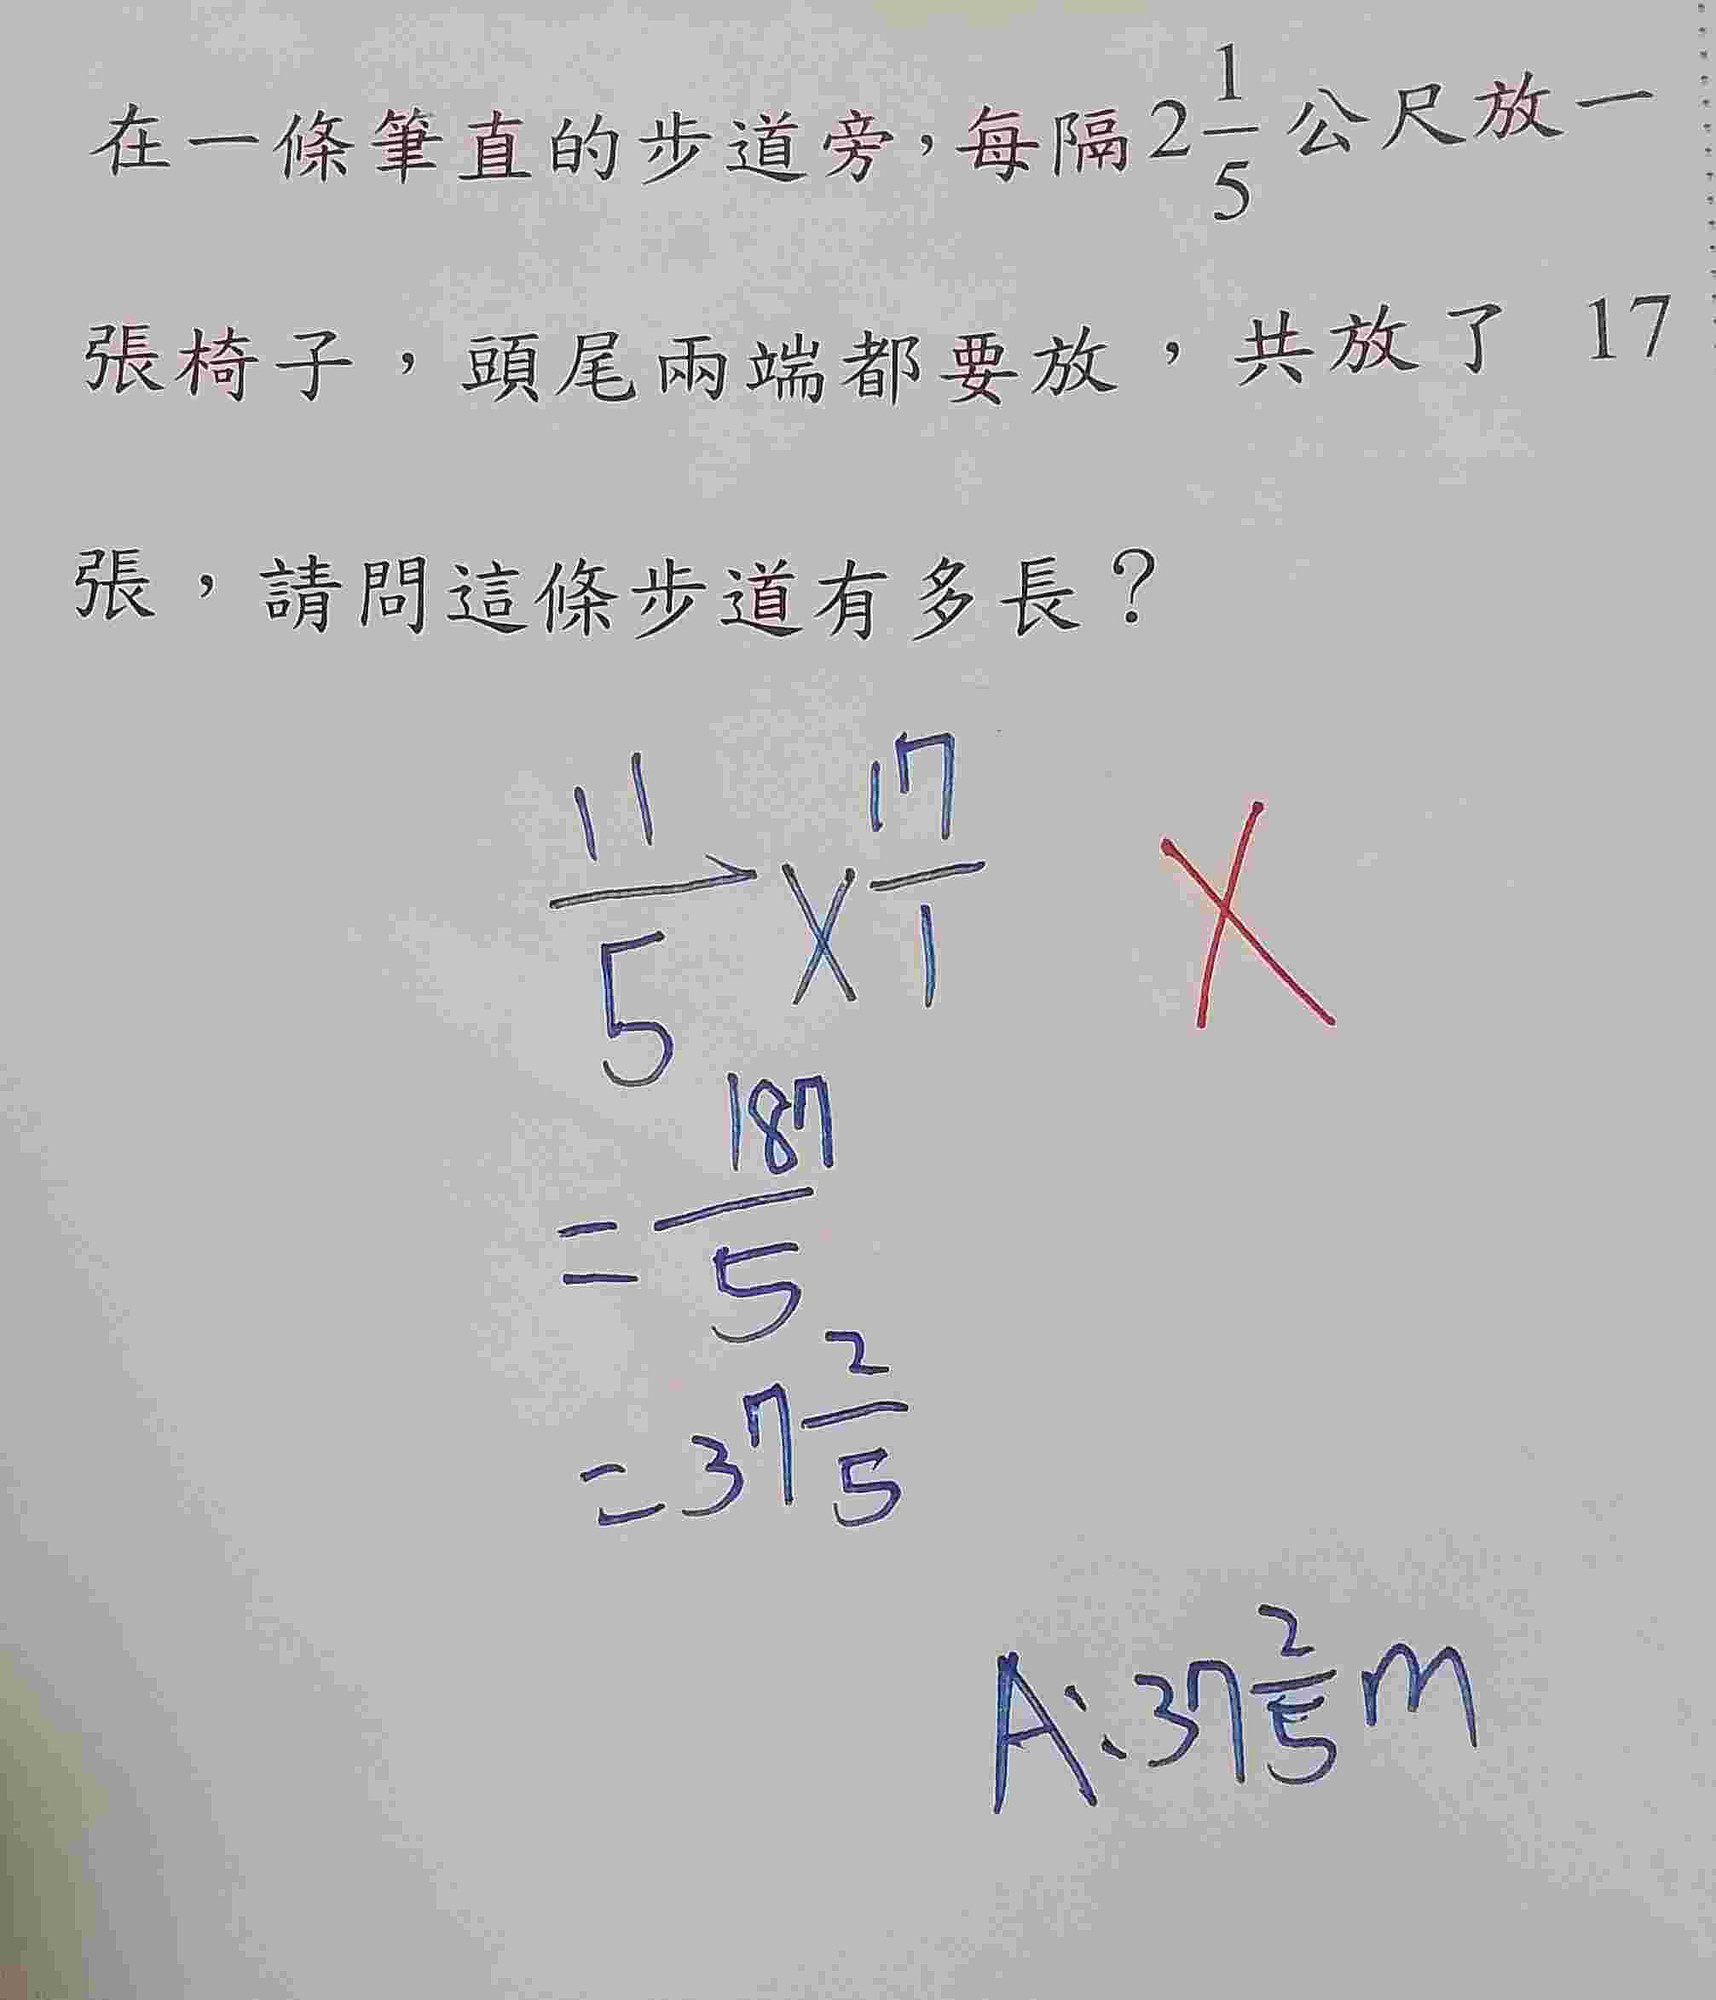 在一條筆直的步道旁，每隔2 1/5公尺放一
張椅子，頭尾兩端都要放，共放了 17
張，請問這條步道有多長？
11/5 × 17/1
= 187/5
= 37 2/5
A: 37 2/5 m